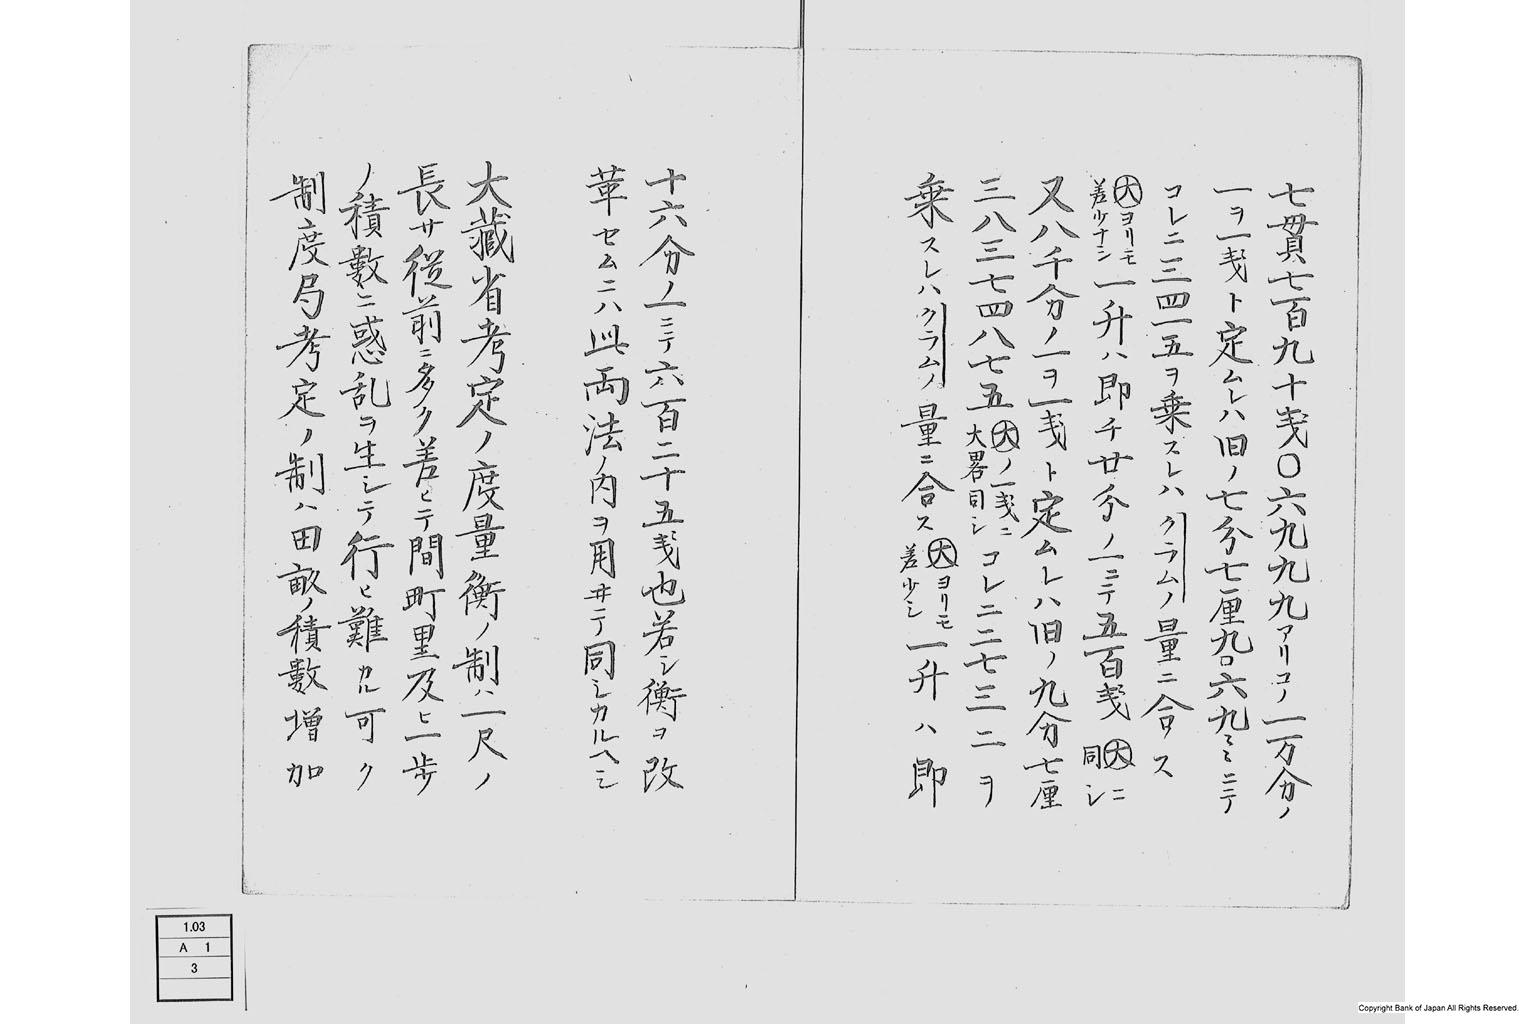 七貫七百九十戔〇六九九九アリコノ一万分ノ
一ヲ一戔ト定ムレハ旧ノ七分七厘九口六九ミミニテ
コレニ三四一五ヲ乗スレハクラムノ量ニ合ス
大ヨリモ差少ナシ一升ハ即チ廿分ノ一ニテ五百戔大ニ同シ
又八千分ノ一ヲ一戔ト定ムレハ旧ノ九分七厘
三八三七四八七五大ノ一戔ニ大畧同シコレニ二七三二ヲ
乗スレハクラムノ量ニ合ス大ヨリモ差少シ一升ハ即
十六分ノ一ニテ六百二十五戔也若シ衡ヲ改
革セムニハ此両法ノ内ヲ用ヰテ同シカルヘシ
大藏省考定ノ度量衡ノ制ハ一尺ノ
長サ従前ニ多ク差ヒテ間町里及ヒ一歩
ノ積數ニ惑乱ヲ生シテ行ヒ難カル可ク
制度局考定ノ制ハ田畝ノ積數増加
1.03
A 1
3
Copyright Bank of Japan All Rights Reserved.